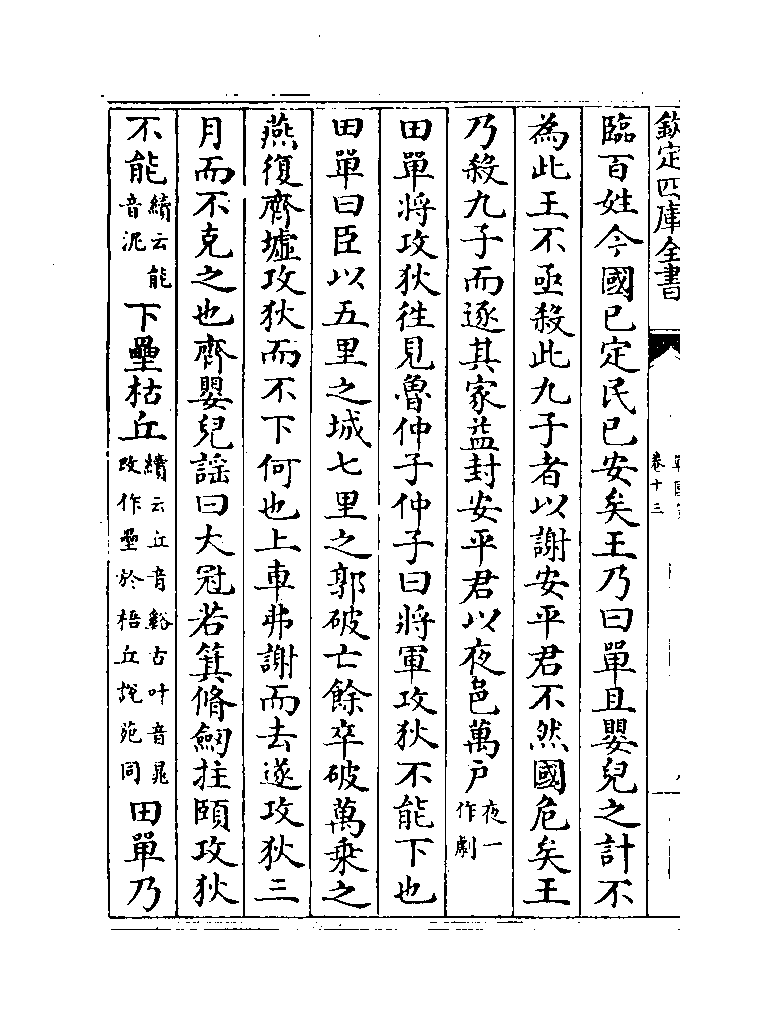 欽定四庫全書
卷十三
臨百姓今國已定民已安矣王乃曰單且嬰兒之計不
為此王不亟殺此九子者以謝安平君不然國危矣王
乃殺九子而逐其家益封安平君以夜邑萬户夜一作劇
田單將攻狄往見魯仲子仲子曰將軍攻狄不能下也
田單曰臣以五里之城七里之郭破亡餘卒破萬乗之
燕復齊墟攻狄而不下何也上車弗謝而去遂攻狄三
月而不克之也齊嬰兒謡曰大冠若箕脩劒拄頤攻狄
不能續云能音泥下壘枯丘續云丘音谿古叶音晁改作壘於梧丘説苑同田單乃